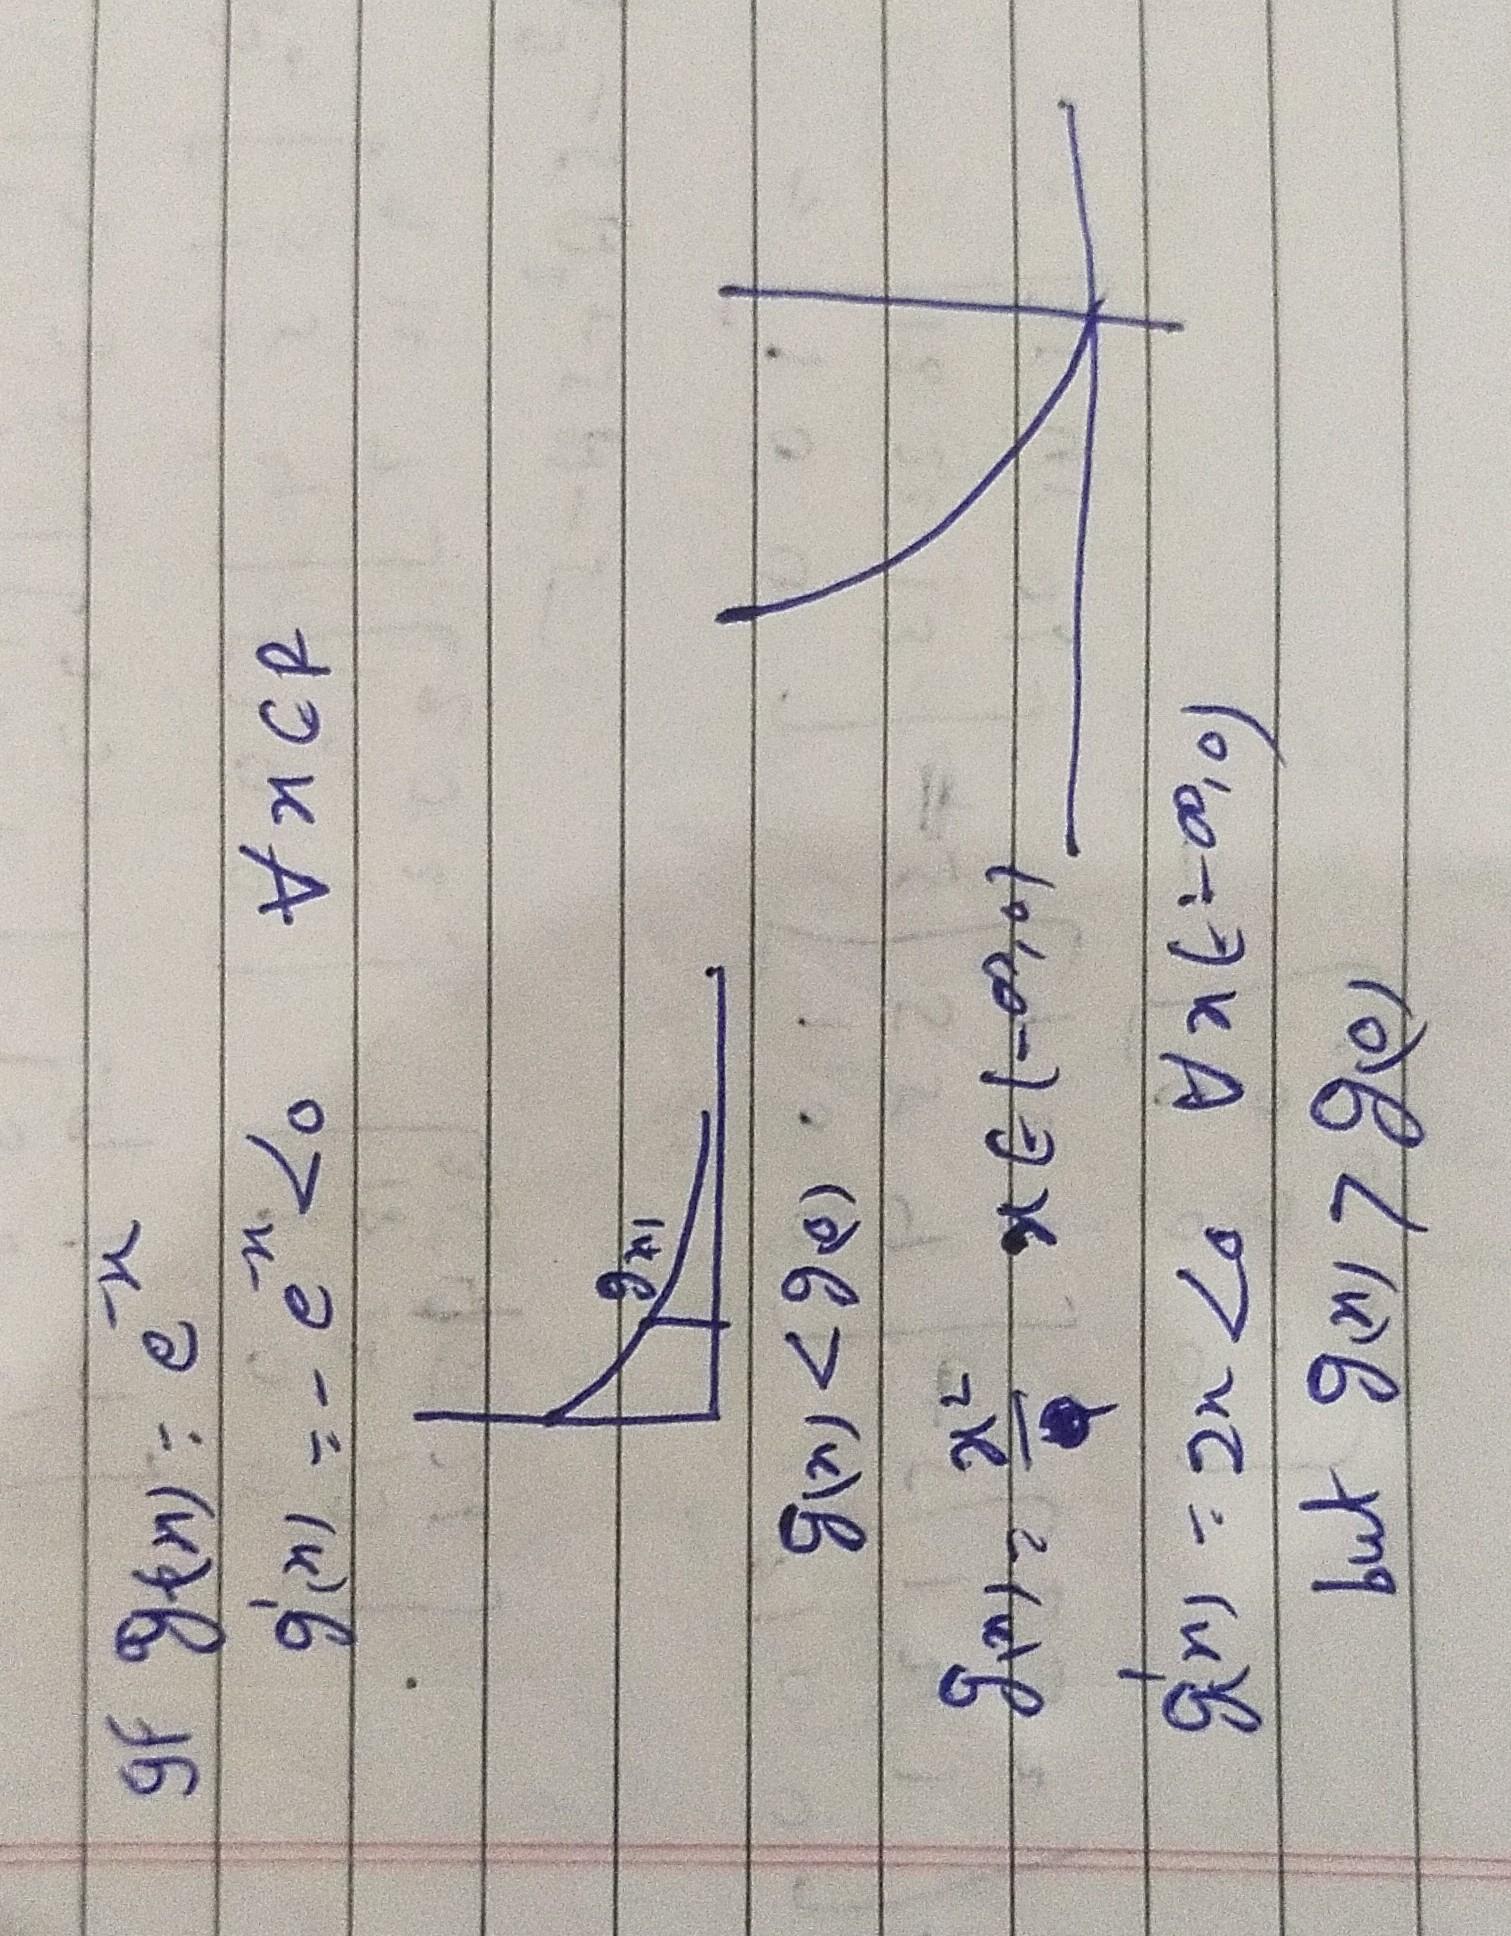 If g(x) = e^-x
g'(x) = - e^-x < 0 ∀ x ∈ R
g(x)
g(x) < g(0)
g(x) = x² x ∈ (-∞, 0)
g'(x) = 2x < 0 ∀ x ∈ (-∞, 0)
but g(x) > g(0)